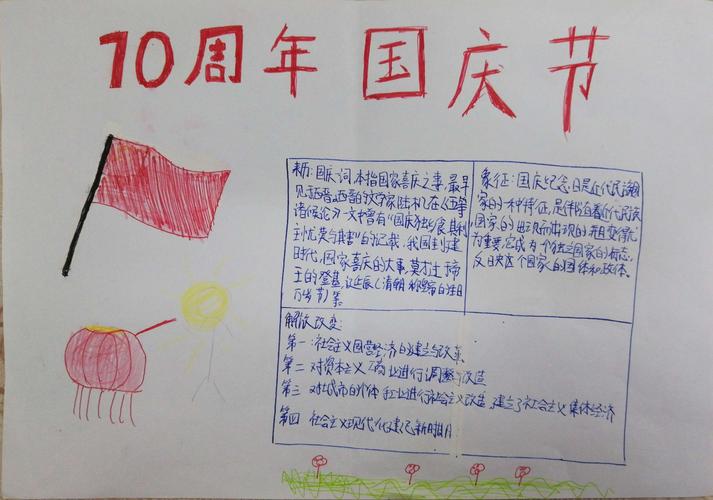 70周年 国庆节
国庆词,本指国家喜庆之事,最早
见西晋,西晋的文学家陆机在《五等
诸侯论》一文中曾有"国庆独
主忧莫与其害"的记载,我国封建
时代,国家喜庆的大事,莫过 帝
王的登基,诞辰(清朝称皇帝的生日
万岁节)等。
象征:国庆纪念日是近代民族国
家的一种特征,是伴随着近代民族
国家的出现而出现的,并且变得尤
为重要,它成为 个独立国家的标志,
反映这个国家的国体和政体。
解放改变:
第一:社会主义国营经济的建立与改革
第二 对资本主义 商业进行调整与改造
第三 对城市的个体 手工业进行社会主义改造,建立了社会主义集体经济
第四 社会主义现代化建设新时期